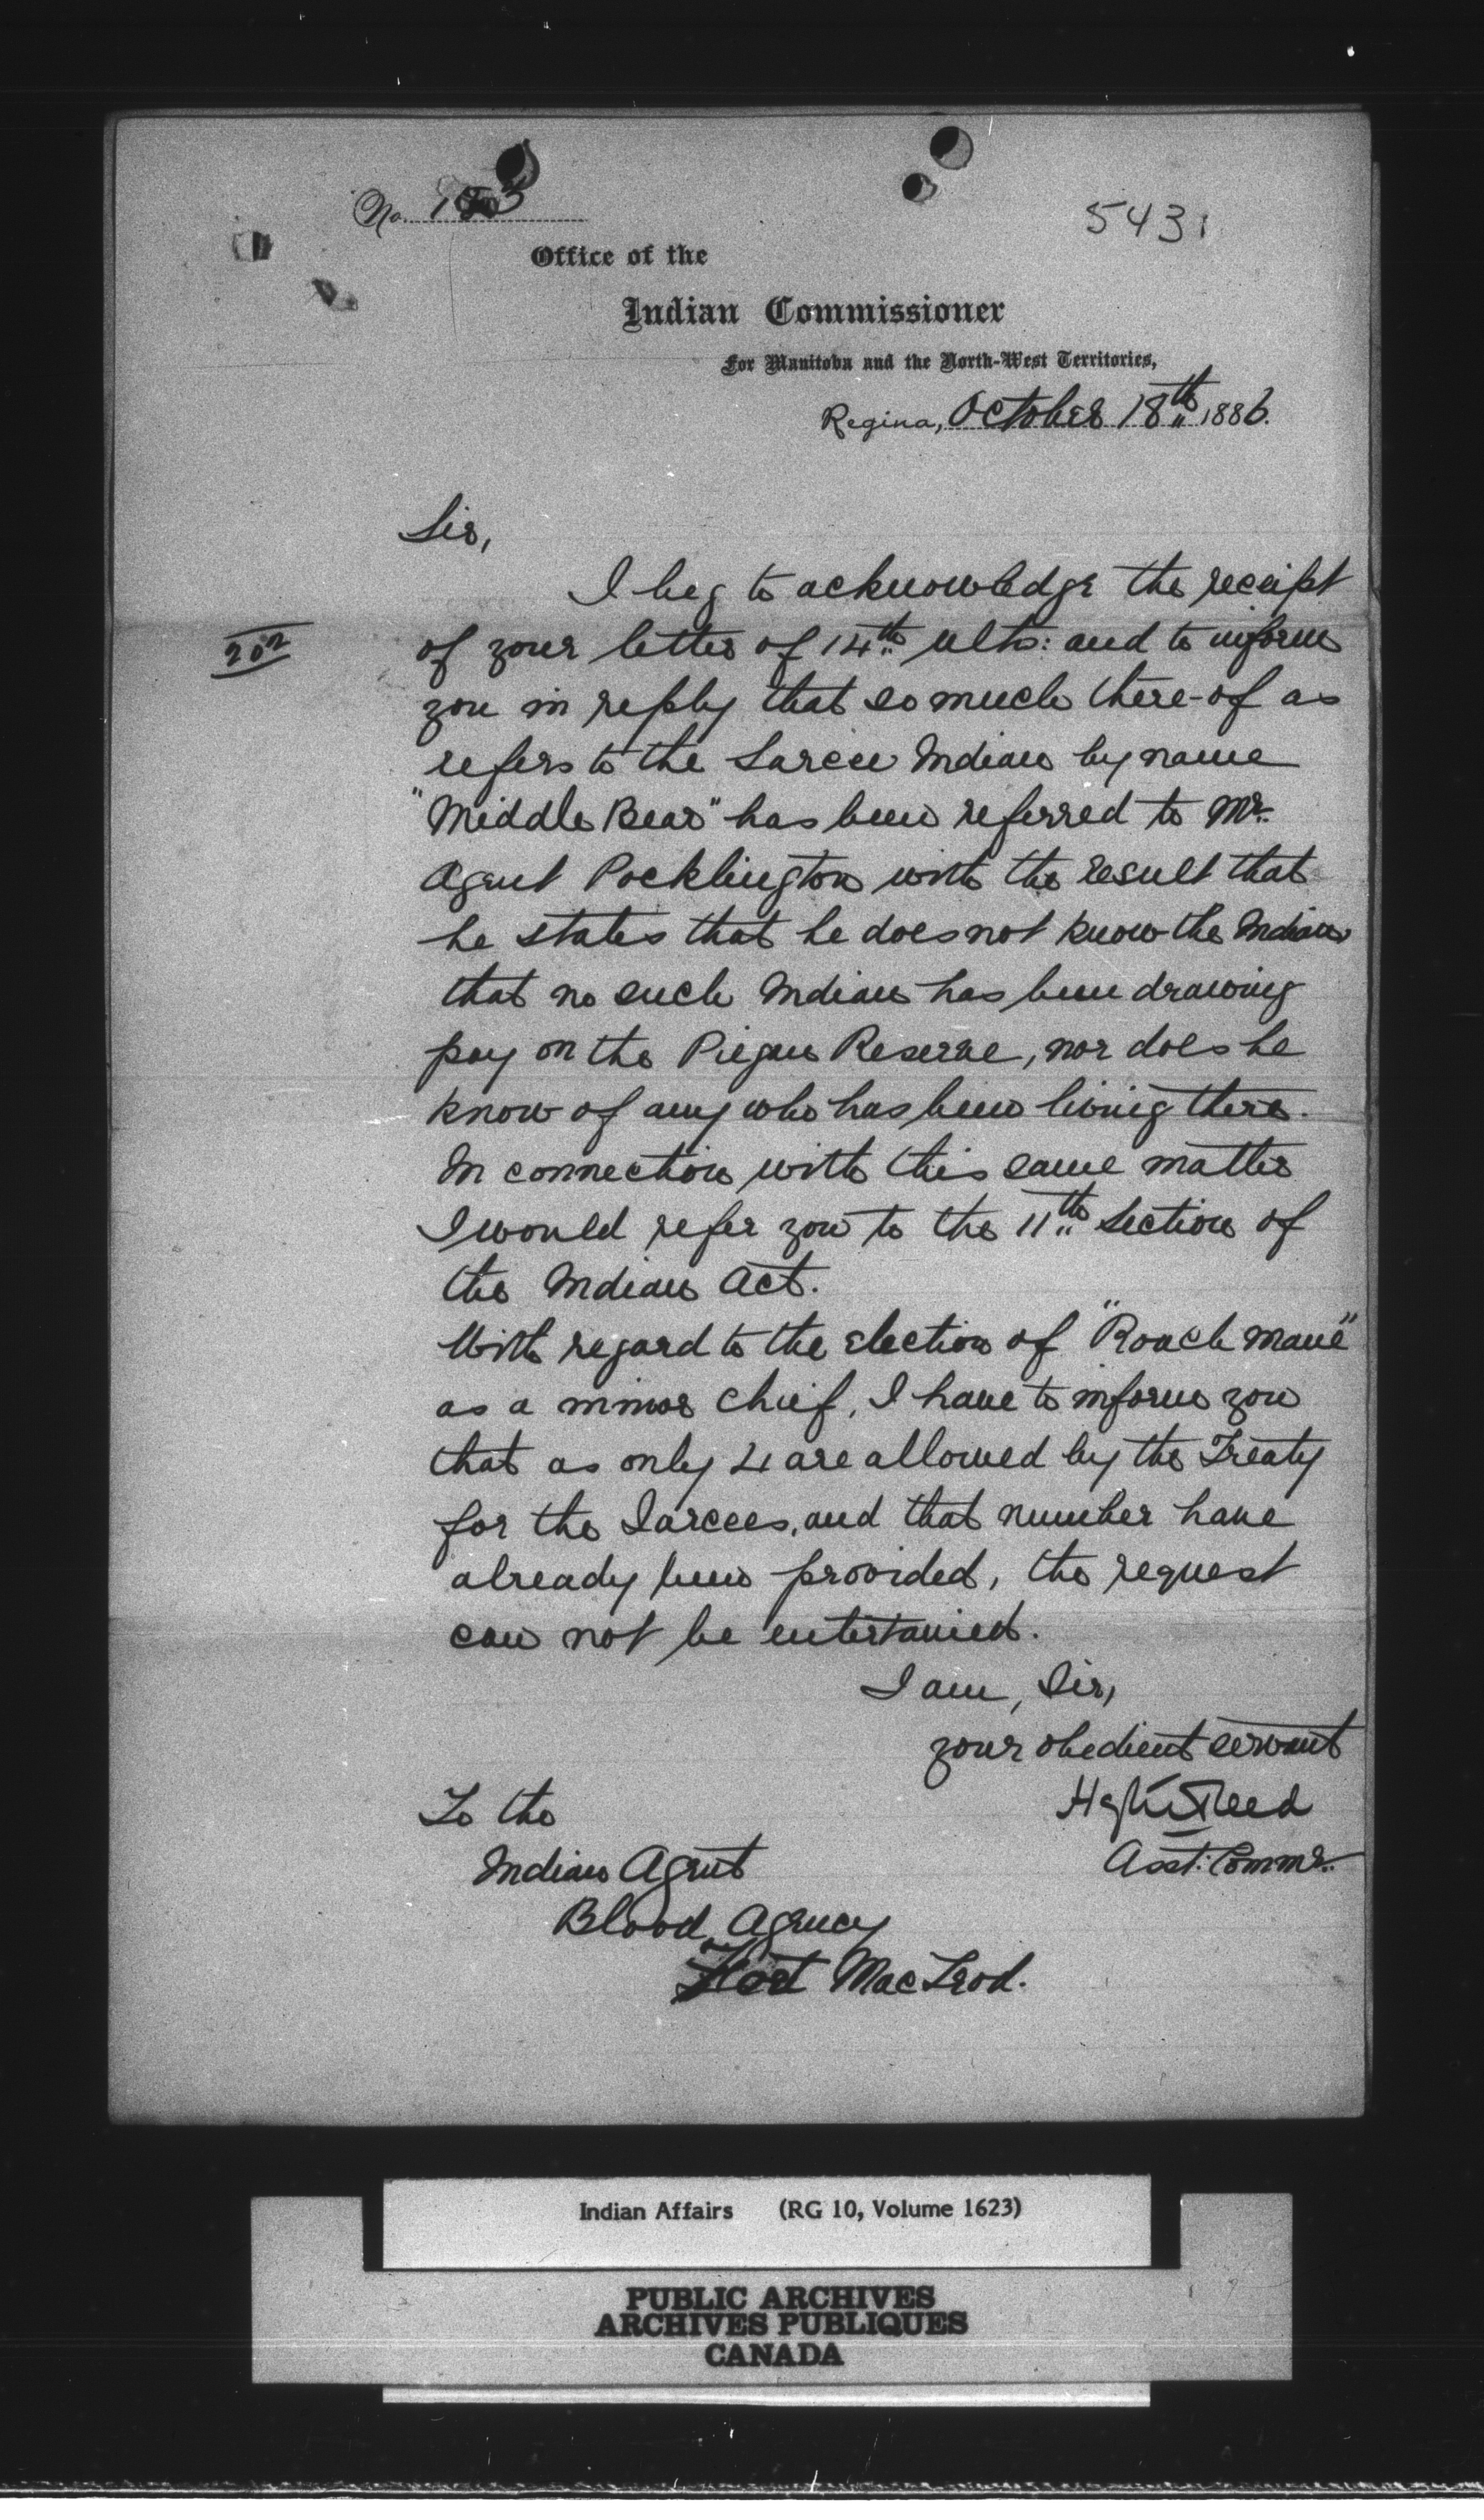 No.
5431
Office of the
Indian Commissioner
For Manitoba and the North-West Territories,
Regina, October 18th 1886.
Sir,
I beg to acknowledge the receipt
of your letter of 14th ulto: and to inform
you in reply that so much there-of as
refers to the Sarcee Indian by name
"Middle Bear" has been referred to Mr.
Agent Pocklington with the result that
he states that he does not know the Indian
that no such Indian has been drawing
pay on the Piegan Reserve, nor does he
know of any who has been living there.
In connection with this same matter
I would refer you to the 11th Section of
the Indian Act.
With regard to the election of "Roach Mane"
as a minor Chief, I have to inform you
that as only 4 are allowed by the Treaty
for the Sarcees, and that number have
already been provided, the request
can not be entertained.
I am, Sir,
your obedient servant
Hayter Reed
Asst: Commr.
To the
Indian Agent
Blood Agency
Fort MacLeod.
Indian Affairs (RG 10, Volume 1623)
PUBLIC ARCHIVES
ARCHIVES PUBLIQUES
CANADA